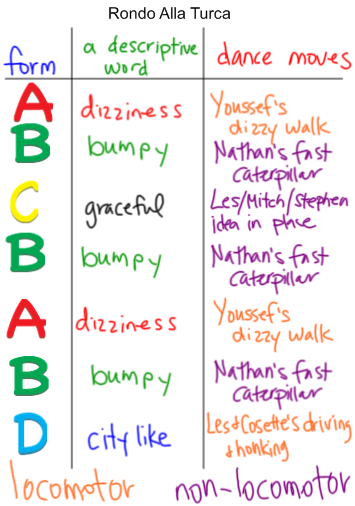 Rondo Alla Turca
form a descriptive word dance moves
A dizziness Youssef's dizzy walk
B bumpy Nathan's fast caterpillar
C graceful Les/Mitch/Stephen idea in place
B bumpy Nathan's fast caterpillar
A dizziness Youssef's dizzy walk
B bumpy Nathan's fast caterpillar
D city like Les & Cosette's driving & honking
locomotor non-locomotor